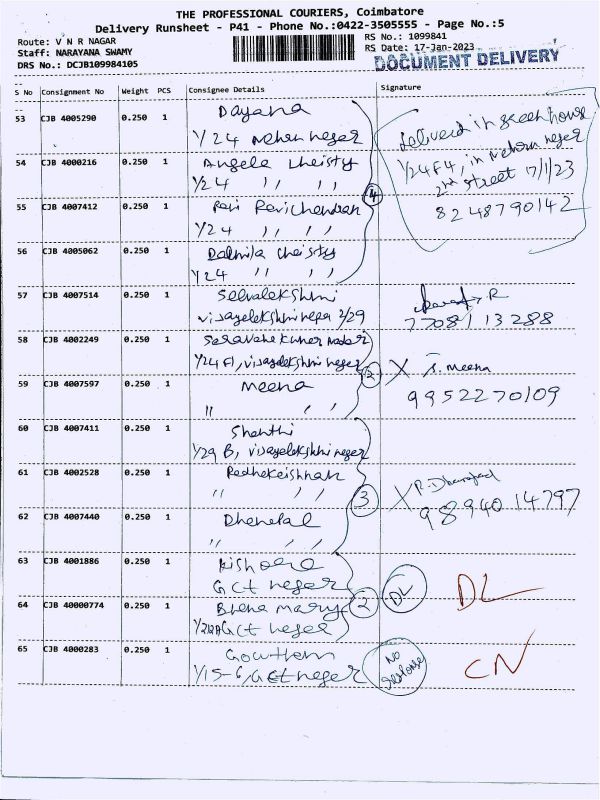 THE PROFESSIONAL COURIERS, Coimbatore
Delivery Runsheet - P41 - Phone No.:0422-3505555 - Page No.:5
Route: V N R NAGAR
RS No.: 1099841
Staff: NARAYANA SWAMY
RS Date: 17-Jan-2023
DRS No.: DCJB109984105
DOCUMENT DELIVERY
S No Consignment No Weight PCS Consignee Details Signature
53 CJB 4005290 0.250 1 Dayana
1/24 Nehru neger
54 CJB 4000216 0.250 1 Angela cheisty
1/24 ,, ,,
55 CJB 4007412 0.250 1 Ravi Ravichendran
1/24 ,, ,,
56 CJB 4005062 0.250 1 Dalmila cheisty
1/24 ,, ,,
4
Delivered in green house
1/24 F4, in Nehru neger
2nd street 17/1/23
8248790142
57 CJB 4007514 0.250 1 Selvalekshmi
vijayelekshmi neger 2/29
R
77081 13288
58 CJB 4002249 0.250 1 Saravanekumer
1/24 F1, vijayelekshmi neger
59 CJB 4007597 0.250 1 Meena
,, ,,
2
X S. Meena
9952270109
60 CJB 4007411 0.250 1 Shanthi
1/29 B, vijayelekshmi neger
61 CJB 4002528 0.250 1 Redhekeishnan
,, ,,
62 CJB 4007440 0.250 1 Dhenepal
,, ,,
3
X P. Dhanapal
98940 14797
63 CJB 4001886 0.250 1 Kishore
GCT neger
64 CJB 40000774 0.250 1 Beena mary
GCT neger
2
DL
DL
65 CJB 4000283 0.250 1 Gowthem
1/15-6, GCT neger
No
response
CN